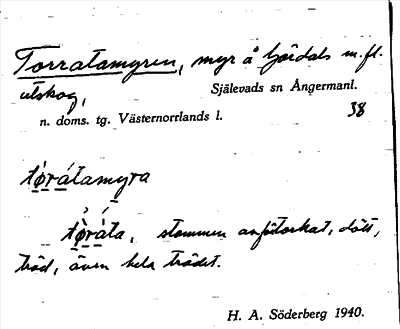 Torratamyren, myr å Gördals m.fl.
utskog, Själevads sn Ångermanl.
n. doms. tg. Västernorrlands l. 38
tørátamyra
tøráta, stammen av torkat, dött,
träd, även hela trädet.
H. A. Söderberg 1940.